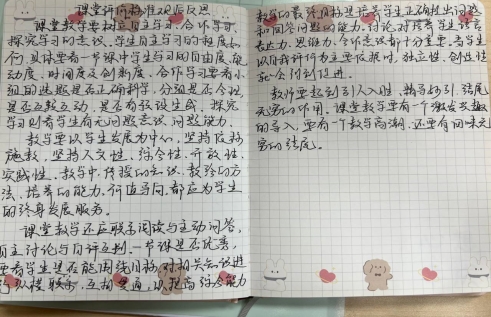 课堂评价标准观后反思
课堂教学要树立自主学习、合作学习、
探究学习的意识，学生自主学习的程度如
何，具体要看一节课中学生学习的自由度、能
动度、时间度及创新度。合作学习要看小
组的选题是否正确科学，分组是否合理，
是否互教互动，是否有预设生成。探究
学习则看学生有无问题意识、问题能力。
教学要以学生发展为中心，坚持因材
施教，坚持人文性、综合性、开放性、
实践性。教学中，传授的知识、教给的方
法、培养的能力、价值导向，都应为学生
的终身发展服务。
课堂教学还应联系阅读与主动问答，
自主讨论与自评互判。一节课是否优秀，
要看学生是否能围绕目标，对相关知识进
行纵横联系，互相贯通，以提高综合能力
教学的最终目标是培养学生正确提出问题
和回答问题的能力，讨论对培养学生语言
表达力、思维力、合作意识都十分重要。当学生
以自我评价为主要依据时，独立性、创造性
就会得到促进。
教师要起到引人入胜、精导妙引、结尾
无穷的作用。课堂教学要有一个激发兴趣
的导入，要有一个教学高潮，还要有回味无
穷的结尾。